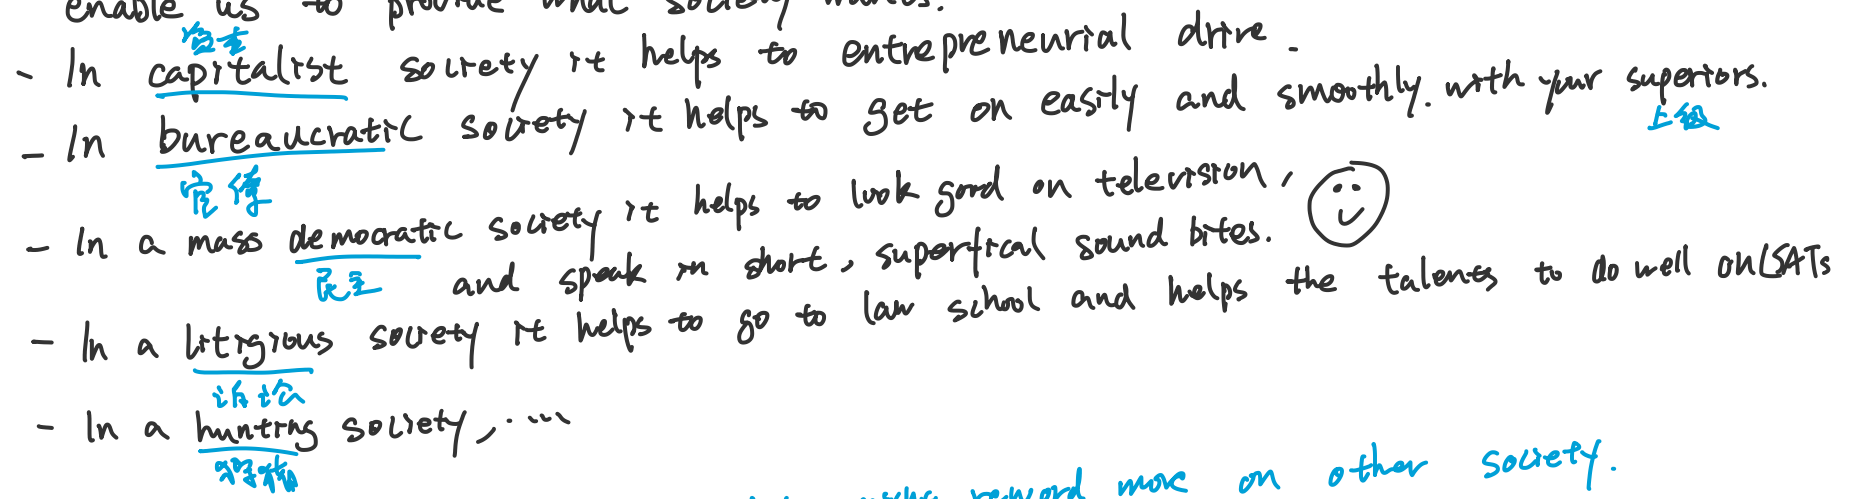 enable us to provide what society wants.
资本
- In capitalist society it helps to entrepreneurial drive.
- In bureaucratic society it helps to get on easily and smoothly. with your superiors.
上级
官僚
- In a mass democratic society it helps to look good on television,
民主
and speak in short, superfical sound bites.
- In a litigious society it helps to go to law school and helps the talents to do well on LSATs
- In a hunting society, .....
狩猎
reword more on other society.